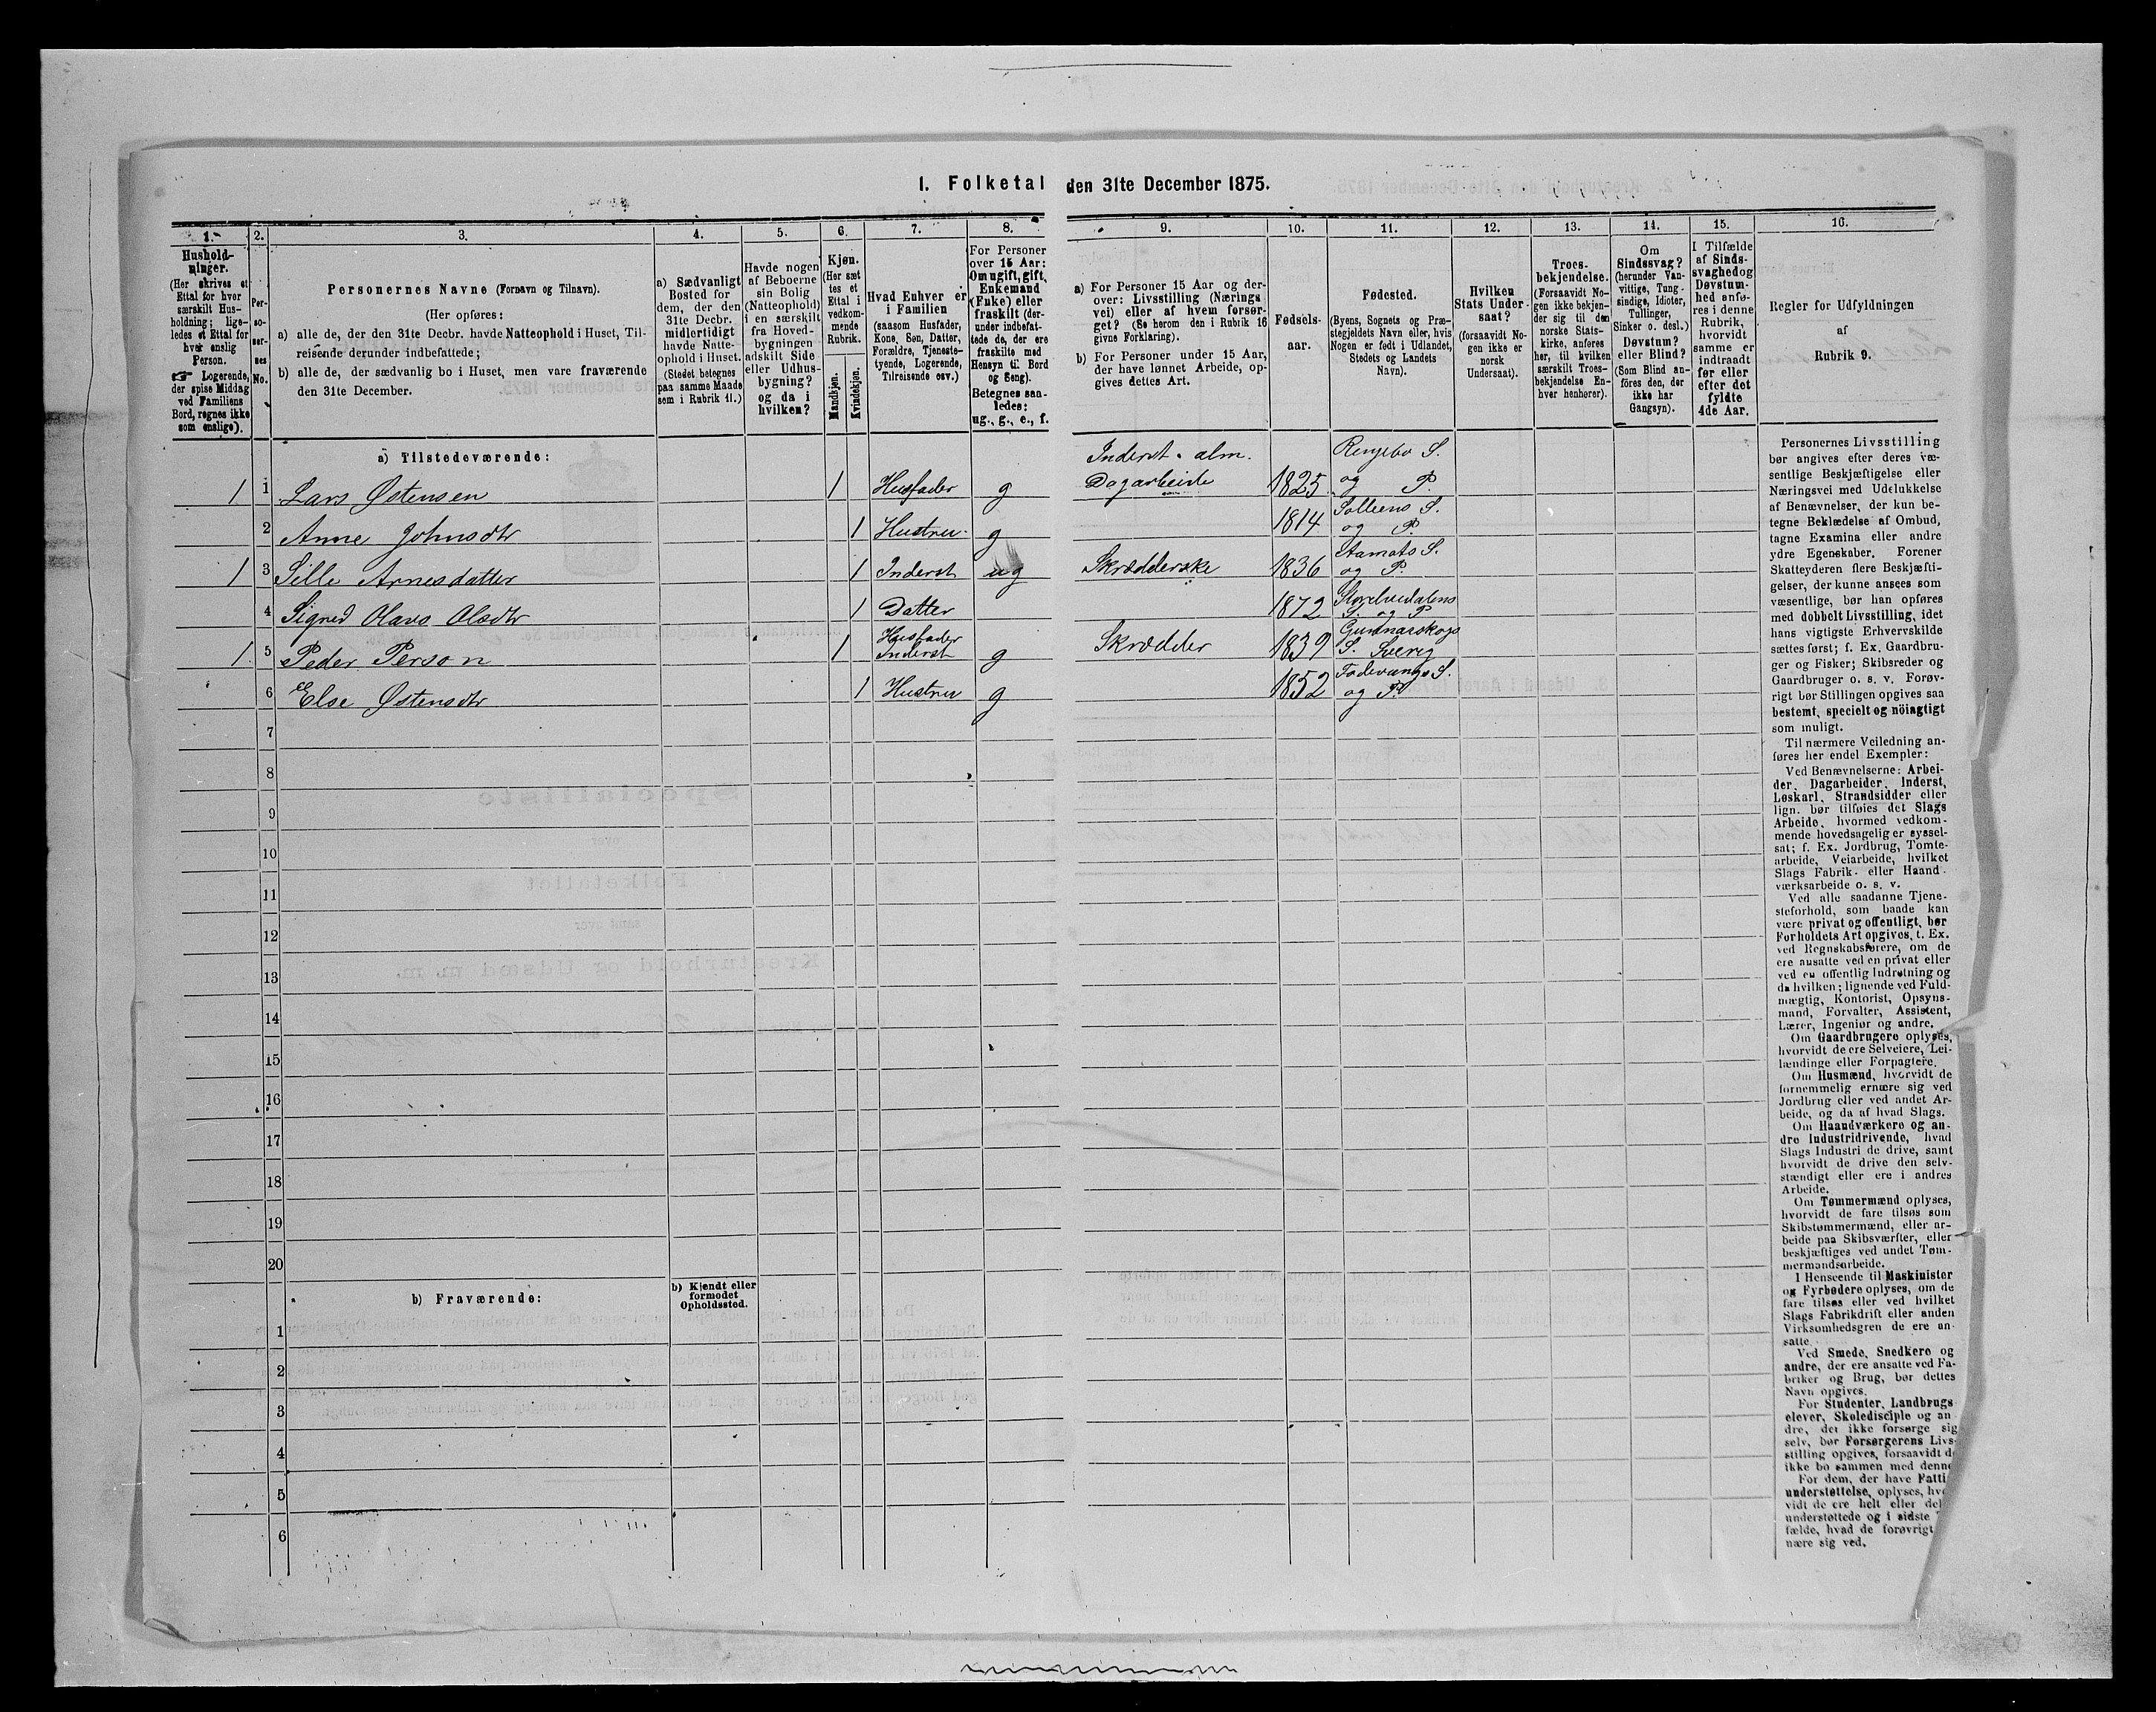 1. Folketal den 31te December 1875.
1. 2. 3. 4. 5. 6. 7. 8. 9. 10. 11. 12. 13. 14. 15. 16.
Hushold-
ninger.
(Her skrives et
Ettal for hver
særskilt Hus-
holdning; lige-
ledes et Ettal for
hver enslig
Person.
☞ Logerende,
der spise Middag
ved Familiens
Bord, regnes ikke
som enslige).
Per-
so-
ner-
nes
No.
Personernes Navne (Fornavn og Tilnavn).
(Her opføres:
a) alle de, der den 31te Decbr. havde Natteophold i Huset, Til-
reisende derunder indbefattede;
b) alle de, der sædvanlig bo i Huset, men vare fraværende
den 31te December.
a) Sædvanligt
Bosted for
dem, der den
31te Decbr.
midlertidigt
havde Natte-
ophold i Huset.
(Stedet betegnes
paa samme Maade
som i Rubrik 11.)
Havde nogen
af Beboerne
sin Bolig
(Natteophold)
i en særskilt
fra Hoved-
bygningen
adskilt Side
eller Udhus-
bygning?
og da i
hvilken?
Kjøn.
(Her sæt
tes et
Ettal i
vedkom-
mende
Rubrik.
Mandkjøn.
Kvindekjøn.
Hvad Enhver er
i Familien
(saasom Husfader,
Kone, Søn, Datter,
Forældre, Tjeneste-
tyende, Logerende,
Tilreisende osv.)
For Personer
over 15 Aar:
Om ugift, gift,
Enkemand
(Enke) eller
fraskilt (der-
under indbefat-
tede de, der ere
fraskilte med
Hensyn til Bord
og Seng).
Betegnes saa-
ledes:
ug., g., e., f.
a) For Personer 15 Aar og der-
over: Livsstilling (Nærings
vei) eller af hvem forsør-
get? (Se herom den i Rubrik 16
givne Forklaring).
b) For Personer under 15 Aar,
der have lønnet Arbeide, op-
gives dettes Art.
Fødsels-
aar.
Fødested.
(Byens, Sognets og Præ-
stegjeldets Navn eller, hvis
Nogen er født i Udlandet,
Stedets og Landets
Navn).
Hvilken
Stats Under-
saat?
(forsaavidt No-
gen ikke er
norsk
Undersaat).
Troes-
bekjendelse.
(Forsaavidt No-
gen ikke bekjen-
der sig til den
norske Stats-
kirke, anføres
her, til hvilken
særskilt Troes-
bekjendelse En-
hver henhører).
Om
Sindssvag?
(herunder Van-
vittige, Tung-
sindige, Idioter,
Tullinger,
Sinker o. desl.)
Døvstum?
eller Blind?
(Som Blind an-
føres den, der
ikke har
Gangsyn).
I Tilfælde
af Sinds-
svaghed og
Døvstum-
hed anfø-
res i denne
Rubrik,
hvorvidt
samme er
indtraadt
før eller
efter det
fyldte
4de Aar.
Regler for Udfyldningen
af
Rubrik 9.
a) Tilstedeværende:
1 1 Lars Østensen 1 Husfader g Inderst. alm. Dagarbeide 1825 Ringebo S. og P.
2 Anne Johnsdtr 1 Hustru g 1814 Solliens S. og P.
1 3 Sille Arnesdatter 1 Inderst ug Skrædderske 1836 Aamots S. og P.
4 Sigrid Olava Olsdtr 1 Datter 1872 Storelvedalens S. og P
1 5 Peder Person 1 Husfader Inderst g Skrædder 1839 Gunnarskogs S. Sverig
6 Else Østensdtr 1 Hustru g 1852 Fodevangs S. og P.
7
8
9
10
11
12
13
14
15
16
17
18
19
20
b) Fraværende:
b) Kjendt eller
formodet
Opholdssted.
1
2
3
4
5
6
Personernes Livsstilling
bør angives efter deres væ-
sentlige Beskjæftigelse eller
Næringsvei med Udelukkelse
af Benævnelser, der kun be-
tegne Beklædelse af Ombud,
tagne Examina eller andre
ydre Egenskaber. Forener
Skatteyderen flere Beskjæfti-
gelser, der kunne ansees som
væsentlige, bør han opføres
med dobbelt Livsstilling, idet
hans vigtigste Erhvervskilde
sættes først; f. Ex. Gaardbru-
ger og Fisker; Skibsreder og
Gaardbruger o. s. v. Forøv-
rigt bør Stillingen opgives saa
bestemt, specielt og nöiagtigt
som muligt.
Til nærmere Veiledning an-
føres her endel Exempler:
Ved Benævnelserne: Arbei-
der, Dagarbeider, Inderst,
Løskarl, Strandsidder eller
lign. bør tilføies det Slags
Arbeide, hvormed vedkom-
mende hovedsagelig er syssel-
sat; f. Ex. Jordbrug, Tomte-
arbeide, Veiarbeide, hvilket
Slags Fabrik- eller Haand-
værksarbeide o. s. v.
Ved alle saadanne Tjene-
steforhold, som baade kan
være privat og offentligt, bør
Forholdets Art opgives, t. Ex.
ved Regnskabsførere, om de
ere ansatte ved en privat eller
ved en offentlig Indretning og
da hvilken; lignende ved Fuld-
mægtig, Kontorist, Opsyns-
mand, Forvalter, Assistent,
Lærer, Ingeniør og andre.
Om Gaardbrugere oplyses,
hvorvidt de ere Selveiere, Lei-
lændinge eller Forpagtere.
Om Husmænd, hvorvidt de
fornemmelig ernære sig ved
Jordbrug eller ved andet Ar-
beide, og da af hvad Slags.
Om Haandværkere og an-
dre Industridrivende, hvad
Slags Industri de drive, samt
hvorvidt de drive den selv-
stændigt eller ere i andres
Arbeide.
Om Tømmermænd oplyses,
hvorvidt de fare tilsøs som
Skibstømmermænd, eller ar-
beide paa Skibsværfter, eller
beskjæftiges ved andet Tøm-
mermandsarbeide.
I Henseende til Maskinister
og Fyrbødere oplyses, om de
fare tilsøs eller ved hvilket
Slags Fabrikdrift eller anden
Virksomhedsgren de ere an-
satte.
Ved Smede, Snedkere og
andre, der ere ansatte ved Fa-
briker og Brug, bør dettes
Navn opgives.
For Studenter, Landbrugs
elever, Skoledisciple og an
dre, der ikke forsørge sig
selv, bør Forsørgerens Livs-
stilling opgives, forsaavidt de
ikke bo sammen med denne
For dem, der have Fatti
understøttelse, oplyses, hvo
vidt de ere helt eller del
understøttede og i sidste
fælde, hvad de forøvrigt
nære sig ved.